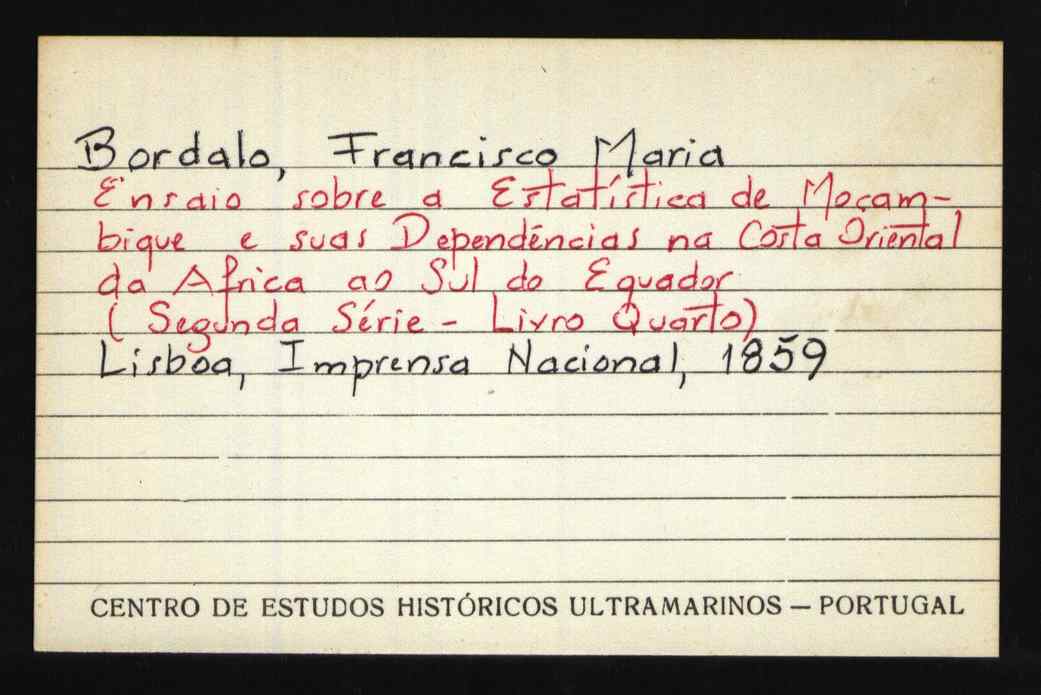 Bordalo, Francisco Maria
Ensaio sobre a Estatística de Moçam-
bique e suas Dependências na Costa Oriental
da Africa ao Sul do Equador
(Segunda Série - Livro Quarto)
Lisboa, Imprensa Nacional, 1859
CENTRO DE ESTUDOS HISTÓRICOS ULTRAMARINOS — PORTUGAL